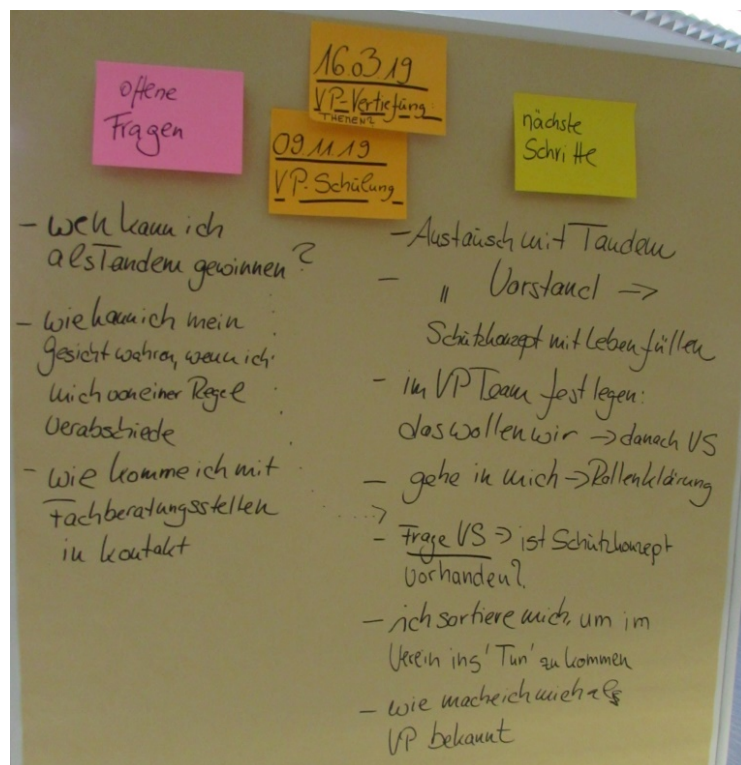 offene
Fragen
16.03.19
VP-Vertiefung
THEMEN?
09.11.19
VP-Schulung
nächste
Schritte
- wen kann ich
als Tandem gewinnen?
- wie kann ich mein
Gesicht wahren, wenn ich
mich von einer Regel
verabschiede
- wie komme ich mit
Fachberatungsstellen
in kontakt
- Austausch mit Tandem
- " Vorstand ->
Schutzkonzept mit Leben füllen
- im VP Team festlegen:
das wollen wir -> danach VS
- gehe in mich -> Rollenklärung
- Frage VS -> ist Schutzkonzept
vorhanden?
- ich sortiere mich, um im
Verein ins 'Tun' zu kommen
- wie mache ich mich als
VP bekannt